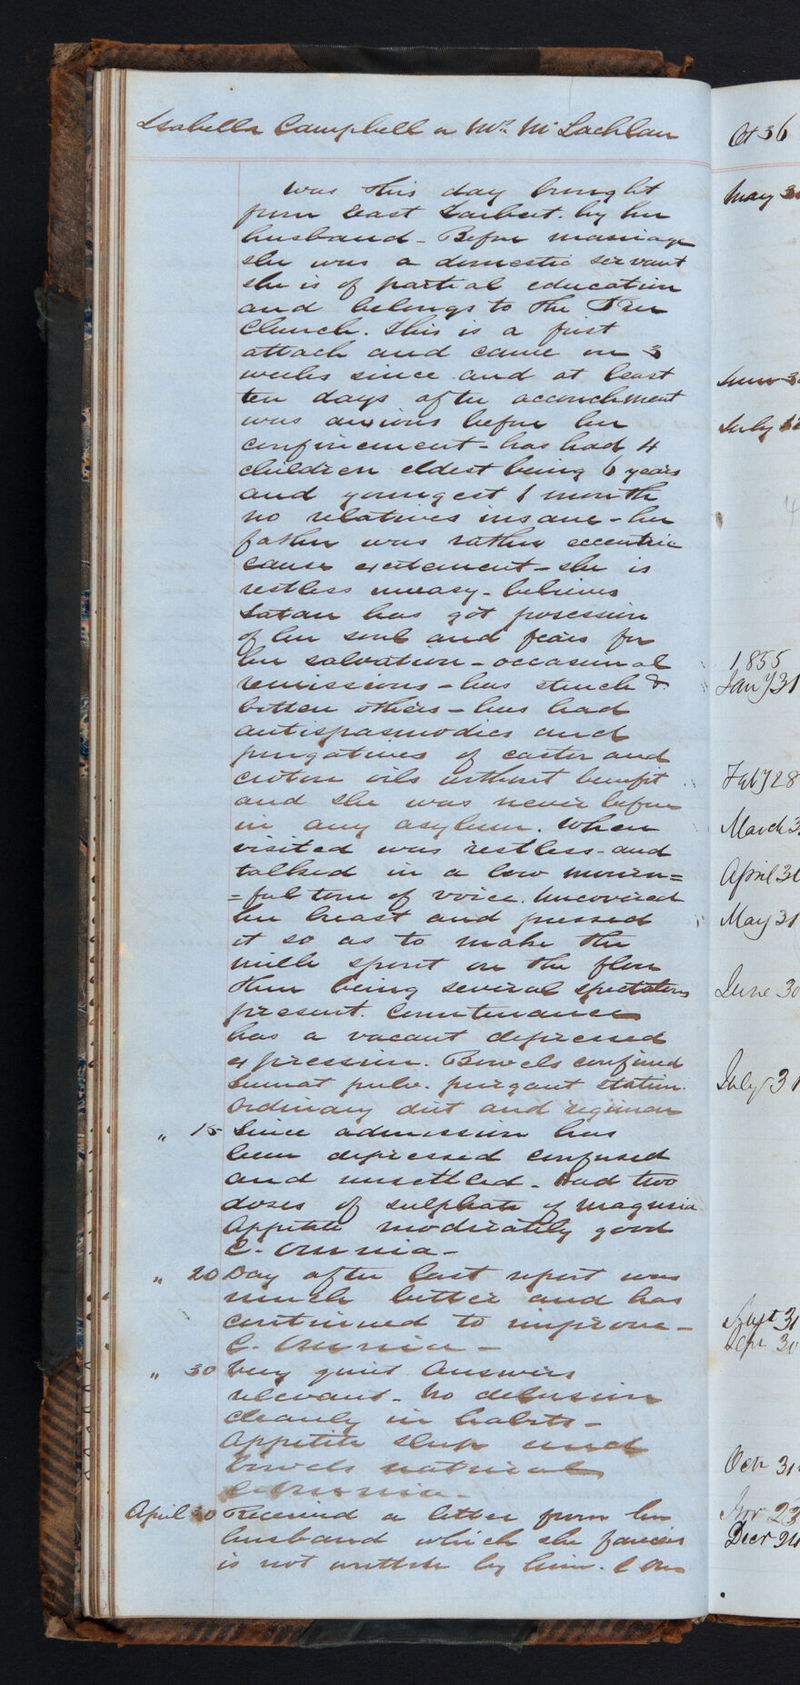 Isabella Campbell or Mrs McLachlan
was this day brought
from East Tarbert. by her
husband - Before marriage
she was a domestic servant
she is of partial education
and belongs to the Free
Church. This is a first
attack and came on 3
weeks since and at least
ten days after accouchment
was anxious before her
confinement - has had 4
children eldest being 6 years
and youngest 1 month
no relatives insane - her
father was rather eccentric
cause excitement - she is
restless uneasy - believes
Satan has got possession
of her soul and fears for
her salvation - occasional
remissions - has struck &
bitten others - has had
antispasmodics and
purgatives of castor and
croton oils without benefit
and she was never before
in any asylum. When
visited was restless - and
talked in a low mourn=
=ful tone of voice. Uncovered
her breast and pressed
it so as to make the
milk spout on the floor
there being several spectators
present. Countenance
has a vacant depressed
expression. Bowels confined
Sumat pulv. purgant statim
Ordinary diet and regimen
" 15 Since admission has
been depressed confused
and unsettled - Had two
doses of sulphate of magnesia
Appetite moderately good
C. Omnia -
" 20 Day after last report was
much better and has
continued to improve -
C. Omnia -
" 30 Very quiet Answers
relevant - No delusion
cleanly in habits -
Appetite sleep and
bowels natural
C. Omnia -
April 30 Received a letter from her
husband which she fancies
is not written by him. C Om
Oct 36
May 3
June 3
July 3
1855
Jany 31
Feby 28
March 3
April 30
May 31
June 30
July 31
Augt 31
Sepr 30
Oct 31
Nov 23
Decr 24